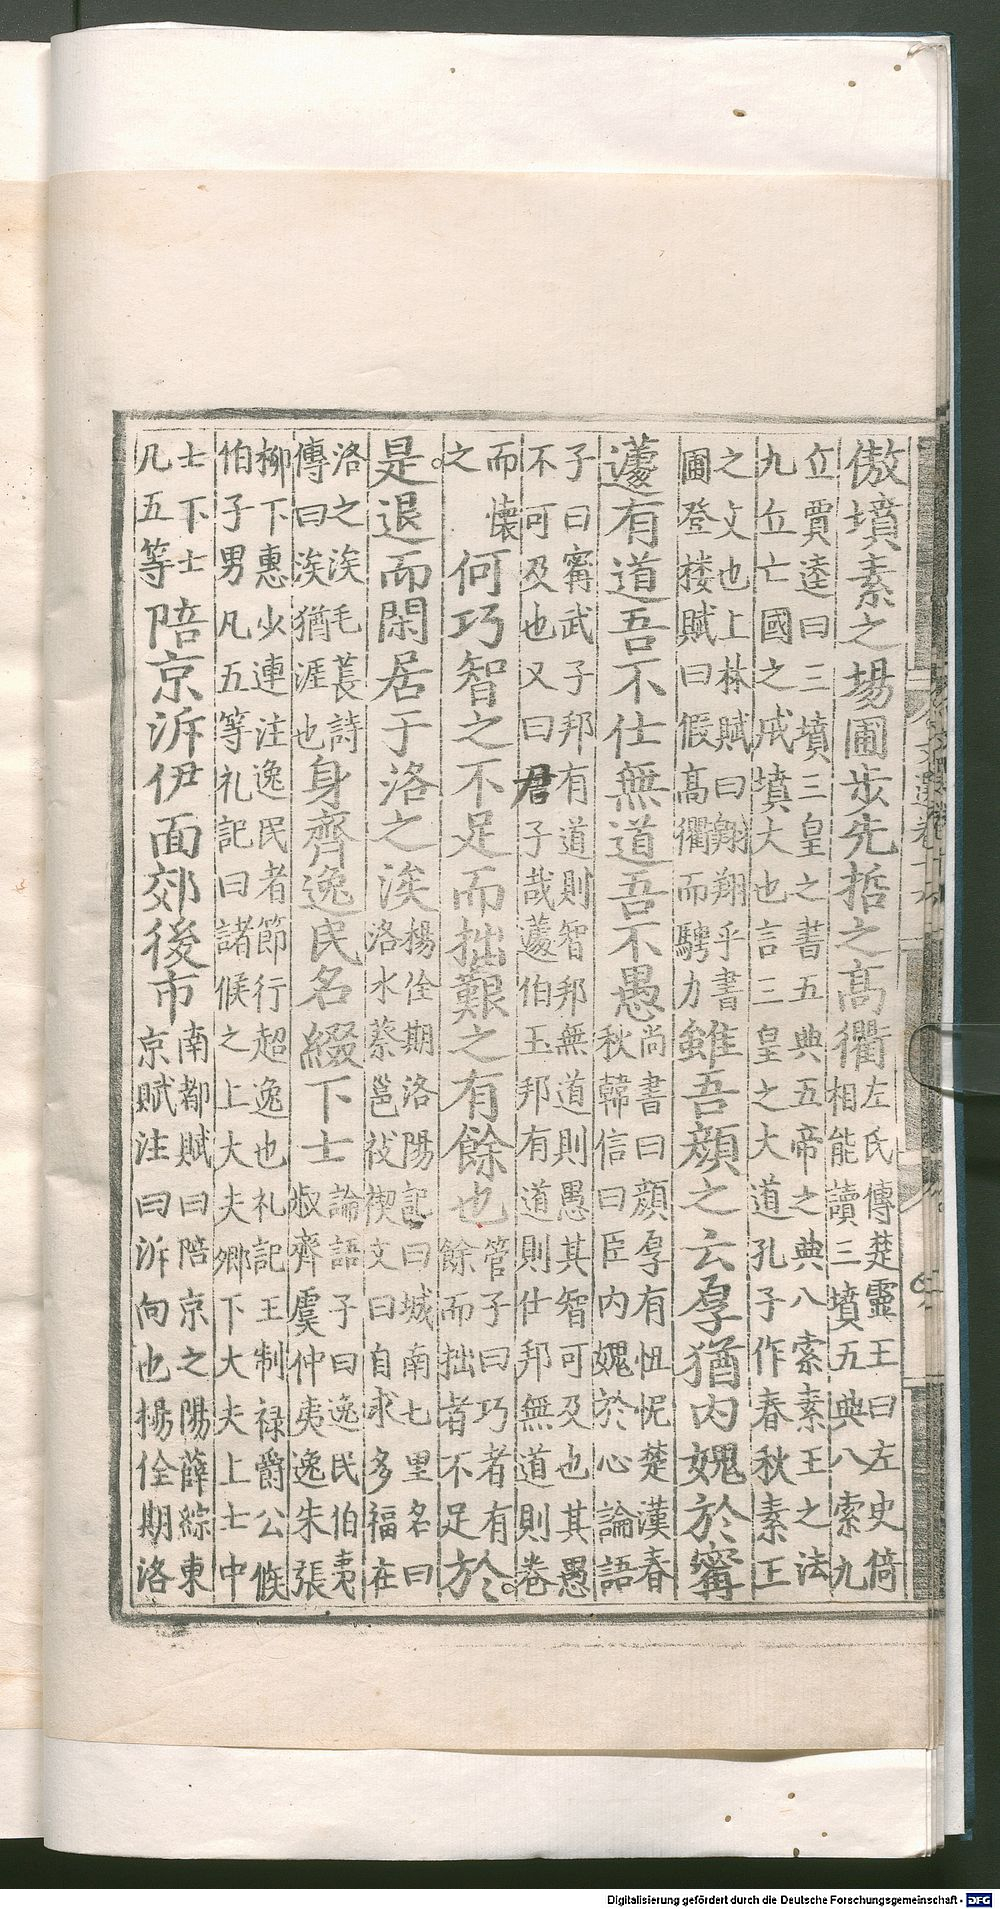 傲墳素之塲圃步先哲之髙衢
左氏傳楚靈王曰左史倚
相能讀三墳五典八索九
丘賈逵曰三墳三皇之書五典五帝之典八索素王之法
九丘亡國之戒墳大也言三皇之大道孔子作春秋素王
之文也上林賦曰翺翔乎書
圃登楼賦曰假髙衢而騁力
雖吾顔之云厚猶内媿於寗
蘧有道吾不仕無道吾不愚
尚書曰顔厚有忸怩楚漢春
秋韓信曰臣内媿於心論語
子曰寗武子邦有道則智邦無道則愚其智可及也其愚
不可及也又曰君子哉蘧伯玉邦有道則仕邦無道則卷
而懷
之
何巧智之不足而拙艱之有餘也
管子曰巧者有
餘而拙者不足
於
是退而閑居于洛之涘
楊佺期洛陽記曰城南七里名曰
洛水蔡邕祓禊文曰自求多福在
洛之涘毛萇詩
傳曰涘猶涯也
身齊逸民名綴下士
論語子曰逸民伯夷
叔齊虞仲夷逸朱張
柳下惠少連注逸民者節行超逸也礼記王制禄爵公候
伯子男凡五等礼記曰諸候之上大夫卿下大夫上士中
士下士
凡五等
陪京泝伊面郊後市
南都賦曰陪京之陽薛綜東
京赋注曰泝向也楊佺期洛
Digitalisierung gefördert durch die Deutsche Forschungsgemeinschaft - DFG